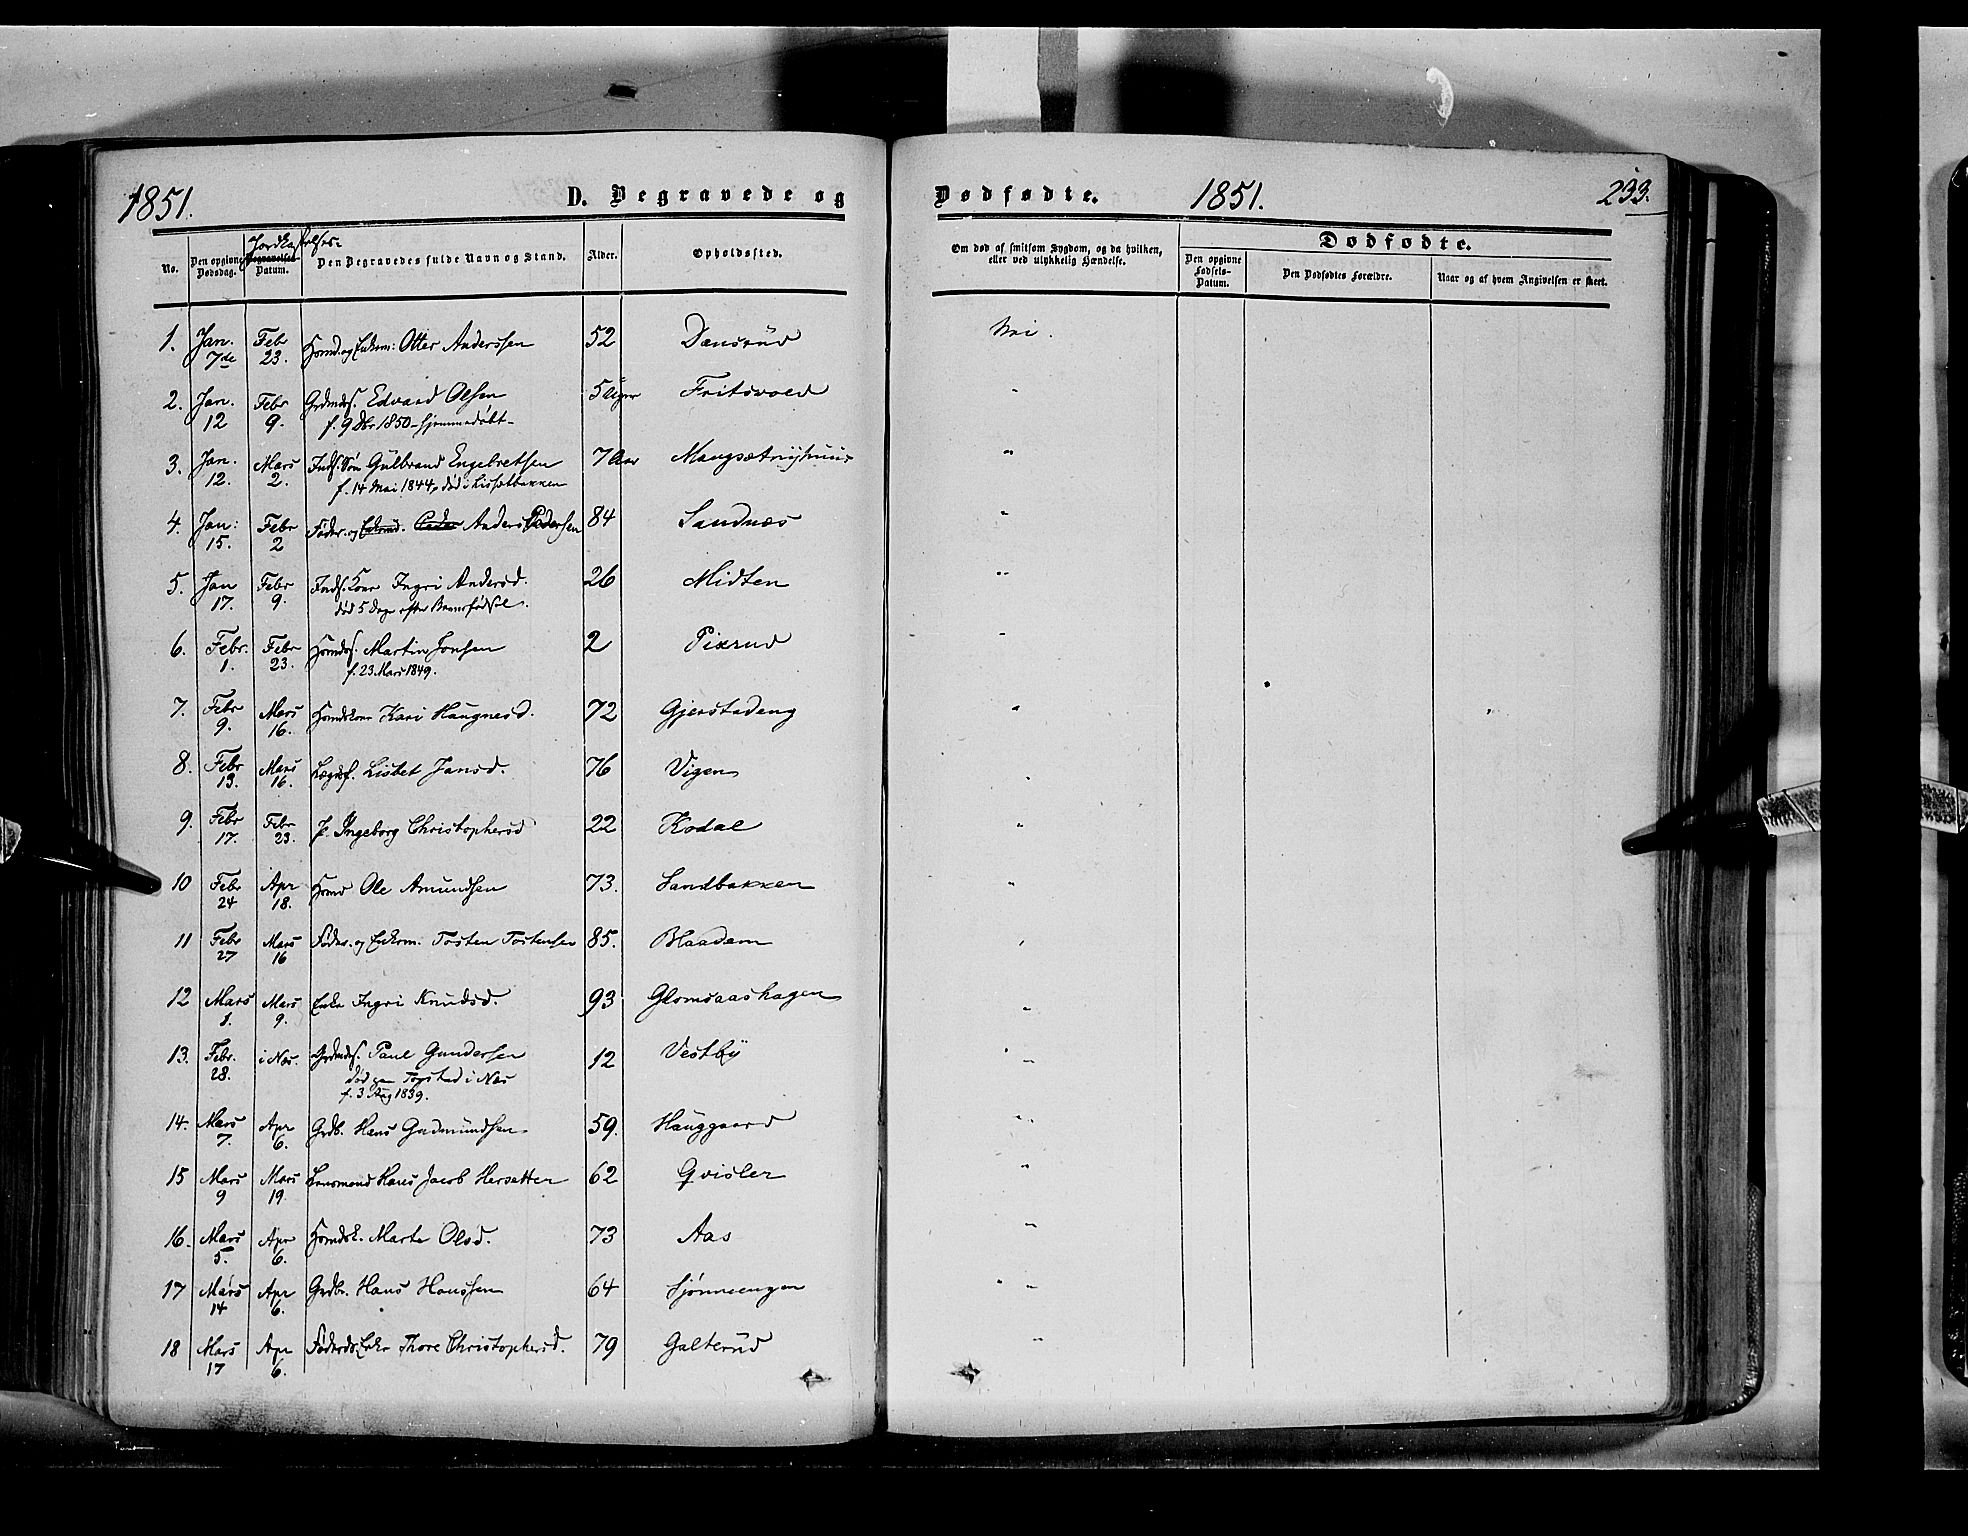 1851.
D. Begravede og
Dødfødte.
1851.
233.
No.
Den opgivne Dødsdag.
Jordkastelses- Begravelses Datum.
Den Begravedes fulde Navn og Stand.
Alder.
Opholdssted.
Om død af smitsom Sygdom, og da hvilken, eller ved ulykkelig Hændelse.
Dødfødte.
Den opgivne Fødsels-Datum.
Den Dødfødtes Forældre.
Naar og af hvem Angivelsen er skeet.
1. Jan. 7de Feb 23. Hsmd. og Enkem: Otter Anderssen 52 Dansrud Nei.
2. Jan. 12 Febr 9. Grdmds. Edvard Olsen 5 Uger Fritsvold "
f. 9 Dbr 1850 - hjemmedøbt -
3. Jan. 12. Mars 2. Inds. Søn Gulbrand Engebretsen 7 Aar "
f. 14 Mai 1844, død i Lissætbakken
4. Jan: 15. Febr 2 Føder. og Enkemd. Peder Anders Pedersen 84 Sandnæs "
5. Jan 17. Febr 9. Inds. Kone Ingri Andersd. 26 Midten "
død 5 Dage efter Barnefødsel.
6. Febr. 1. Febr 23. Hsmds. Martin Jonsen 2 Pixrud "
f. 23 Mars 1849.
7. Febr 9. Mars 16. Hsmdskone Kari Haugnesd. 72 Gjerstadeng "
8. Febr 13. Mars 16. Lægdsf. Lisbet Jansd. 76 Vigen "
9. Febr 17. Febr 23. P. Ingeborg Christophersd 22 Kodal "
10 Febr 24 Apr 18. Hsmd Ole Amundsen 73. Sandbakken "
11 Febr 27 Mars 16 Føder. og Enkem. Tosten Tostensen 85. Blaadam "
12 Mars 1. Mars 9. Enke Ingri Knudsd. 93 Glomsaashagen "
13. Febr. 28. i Nes. Grdmds. Paul Gundersen 12 Vestby "
død paa Togstad i Nes
f. 3 Aug 1839.
14. Mars 7. Apr 6. Grdb. Hans Gudmundsen 59. Hauggaard "
15 Mars 9 Mars 19. Lensmand Hans Jacob Hersetter 62 Qvisler "
16. Mars 5. Apr 6. Hsmdsk. Marte Olsd. 73 Aas "
17 Mars 14 Apr 6. Grdbr. Hans Hanssen 64 Sjønneengen "
18 Mars 17 Apr 6. Føderaads Enke Thore Christophersd. 79 Galterud "